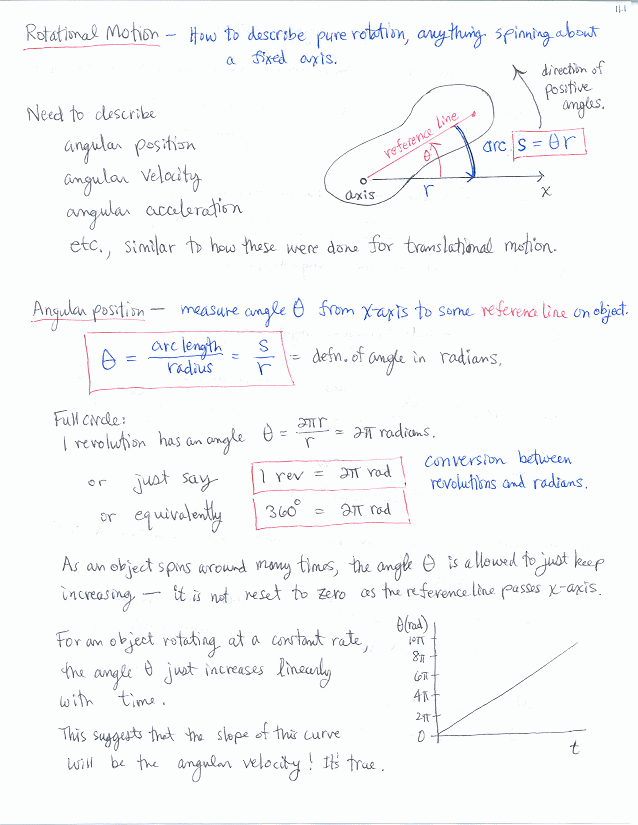 11-1
Rotational Motion – How to describe pure rotation, anything spinning about
a fixed axis.
direction of
positive
angles.
Need to describe
angular position
angular velocity
angular acceleration
etc., similar to how these were done for translational motion.
reference line
θ
arc s = θr
axis
r
x
Angular position – measure angle θ from x-axis to some reference line on object.
θ = arc length / radius = s / r = defn. of angle in radians.
Full circle:
1 revolution has an angle θ = 2πr / r = 2π radians.
or just say 1 rev = 2π rad
or equivalently 360° = 2π rad
conversion between
revolutions and radians.
As an object spins around many times, the angle θ is allowed to just keep
increasing – it is not reset to zero as the reference line passes x-axis.
For an object rotating at a constant rate,
the angle θ just increases linearly
with time.
This suggests that the slope of this curve
will be the angular velocity! It's true.
θ(rad)
10π
8π
6π
4π
2π
0
t